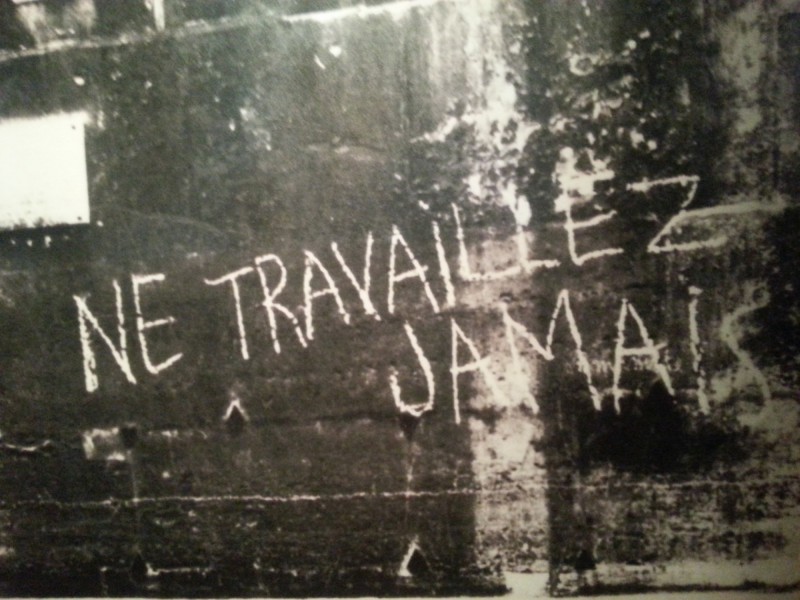 NE TRAVAILLEZ
JAMAIS